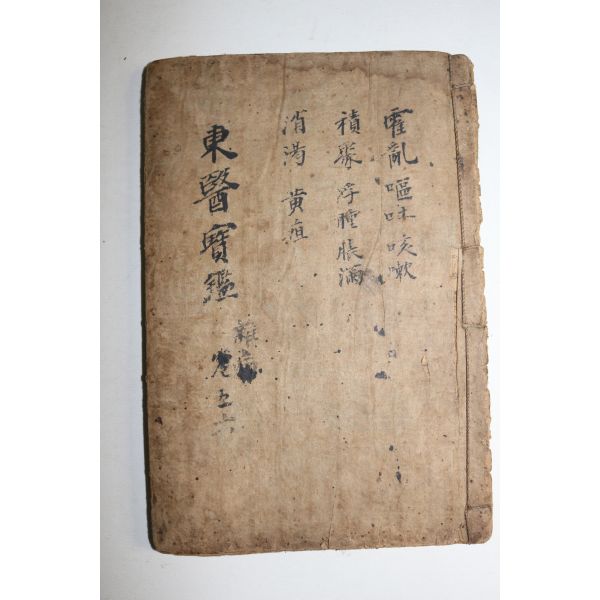 霍亂 嘔吐 咳嗽
積聚 浮腫 脹滿
消渴 黃疸
東醫寶鑑
雜病
卷五六